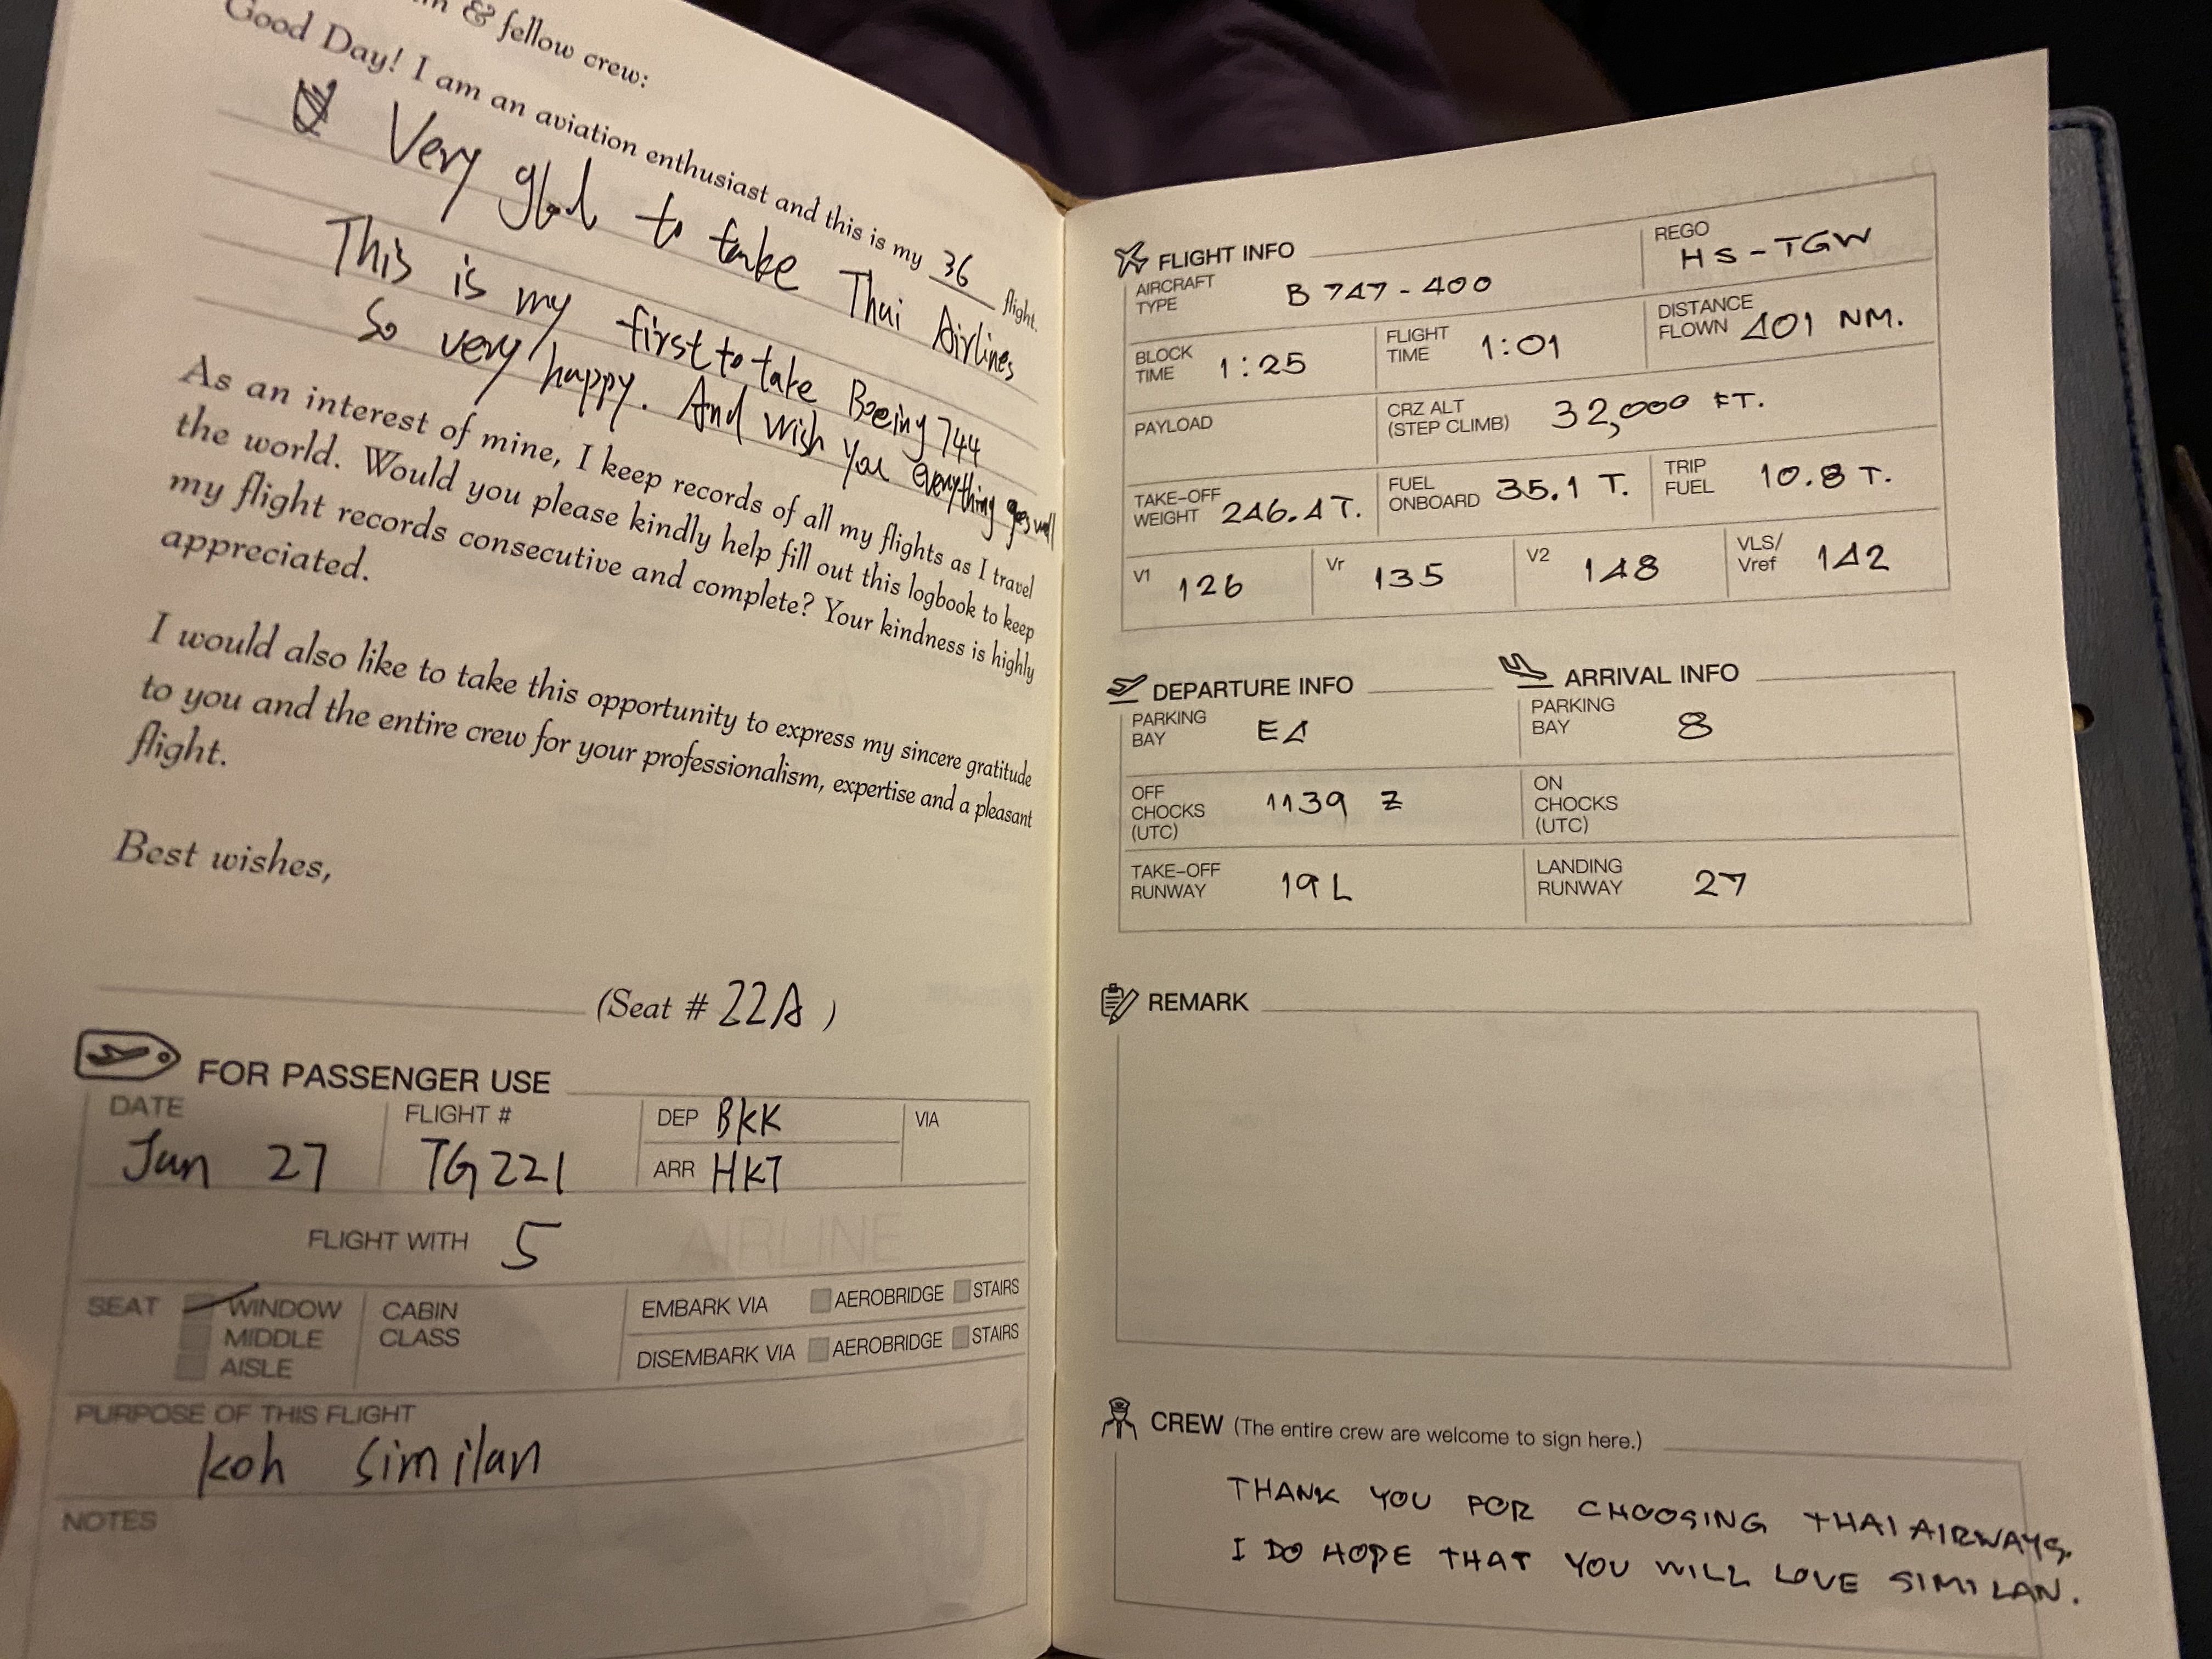 & fellow crew:
Good Day! I am an aviation enthusiast and this is my 36 flight.
Very glad to take Thai Airlines
This is my first to take Boeing 744
So very happy. And wish you everything goes well
As an interest of mine, I keep records of all my flights as I travel
the world. Would you please kindly help fill out this logbook to keep
my flight records consecutive and complete? Your kindness is highly
appreciated.
I would also like to take this opportunity to express my sincere gratitude
to you and the entire crew for your professionalism, expertise and a pleasant
flight.
Best wishes,
(Seat # 22A )
FOR PASSENGER USE
DATE Jan 27
FLIGHT # TG221
DEP BKK
ARR HKT
VIA
FLIGHT WITH 5
AIRLINE
SEAT
WINDOW
MIDDLE
AISLE
CABIN
CLASS
EMBARK VIA AEROBRIDGE STAIRS
DISEMBARK VIA AEROBRIDGE STAIRS
PURPOSE OF THIS FLIGHT
koh similan
NOTES
FLIGHT INFO
AIRCRAFT
TYPE
B 747-400
REGO
HS-TGW
BLOCK
TIME
1:25
FLIGHT
TIME
1:01
DISTANCE
FLOWN
401 NM.
PAYLOAD
CRZ ALT
(STEP CLIMB)
32,000 FT.
TAKE-OFF
WEIGHT
246.4T.
FUEL
ONBOARD
35.1 T.
TRIP
FUEL
10.8 T.
V1 126
Vr 135
V2 148
VLS/
Vref
142
DEPARTURE INFO
PARKING
BAY
E4
OFF
CHOCKS
(UTC)
1139 Z
TAKE-OFF
RUNWAY
19L
ARRIVAL INFO
PARKING
BAY
8
ON
CHOCKS
(UTC)
LANDING
RUNWAY
27
REMARK
CREW (The entire crew are welcome to sign here.)
THANK YOU FOR CHOOSING THAI AIRWAYS.
I DO HOPE THAT YOU WILL LOVE SIMILAN.